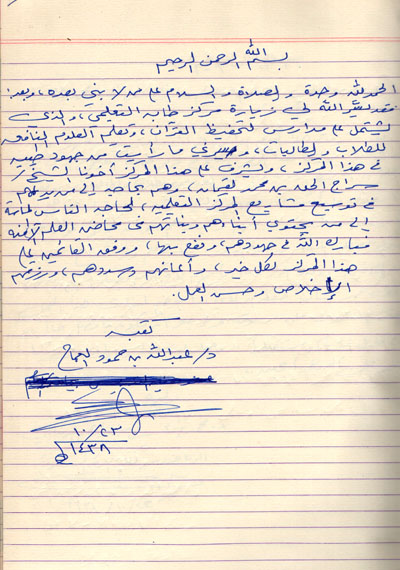 بسم الله الرحمن الرحيم
الحمد لله وحده والصلاة والسلام على من لا نبي بعده، وبعد:
فقد يسّر الله لي زيارة مركز طابه التعليمي، والذي
يشتمل على مدارس لتحفيظ القرآن، وتعلم العلوم النافعة
للطلاب والطالبات، وسرني ما رأيت من جهود طيبه
في هذا المركز، ويشرف على هذا المركز أخونا الشيخ /
سراج الحق بن محمد لقمان، وهم بحاجة إلى من يدعمهم
في توسيع مشاريع المركز التعليمية، لحاجة الناس الماسة
إلى من يحتوي أبناءهم وبناتهم في محاضن العلم الآمنه
فبارك الله في جهودهم، ونفع بها، ووفق القائمين على
هذا المركز لكل خير، وأعانهم وسددهم، ورزقهم
الإخلاص وحسن العمل.
كتبه
د/ عبد الله بن حمود
١٠/٢٣
١٤٣٨هـ